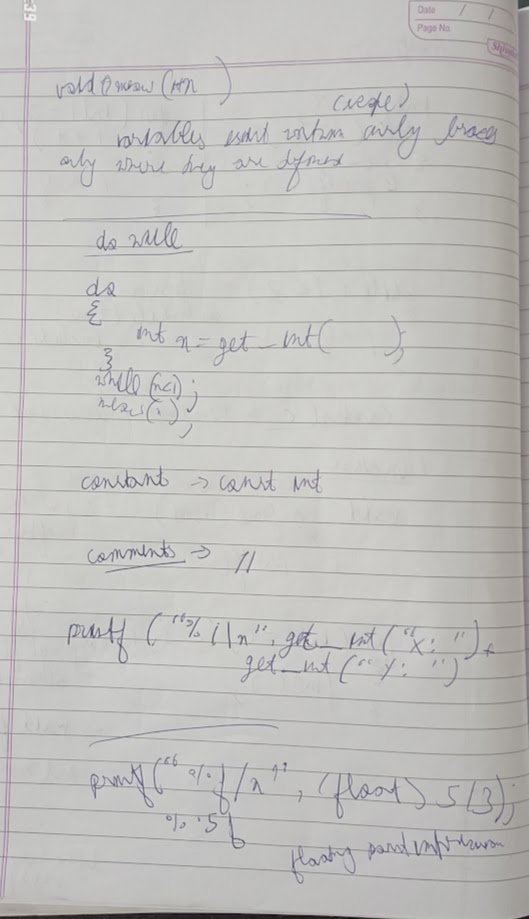 39
Date / /
Page No.
void meow (int n )
(scope)
variables exist within curly braces
only where they are defined
do while
do
{
int n = get_int( );
}
while (n<1);
meow(n);
constant → const int
comments → //
printf ("%i\n", get_int("X: ") +
get_int("Y: ")
printf("%f/n", (float) 5/3);
%.5f
floating point imprecision